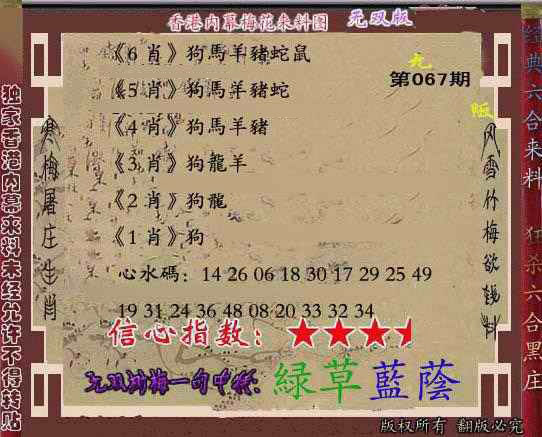 香港内幕梅花来料图 无双版
《6 肖》狗馬羊豬蛇鼠
九
第067期
《5 肖》狗馬羊豬蛇
《4 肖》狗馬羊豬
《3 肖》狗龍羊
《2 肖》狗龍
《1 肖》狗
心水碼：14 26 06 18 30 17 29 25 49
19 31 24 36 48 08 20 33 32 34
信心指数：
无双 梅一句中特：綠草藍蔭
独家香港内幕来料未经允许不得转贴
寒梅屠庄生肖
风雪竹梅欲 料
经典六合来料
狂杀六合黑庄
版权所有 翻版必究